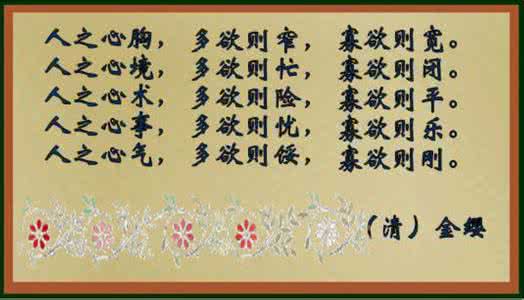 人之心胸，多欲则窄，寡欲则宽。
人之心境，多欲则忙，寡欲则闭。
人之心术，多欲则险，寡欲则平。
人之心事，多欲则忧，寡欲则乐。
人之心气，多欲则馁，寡欲则刚。
（清）金缨